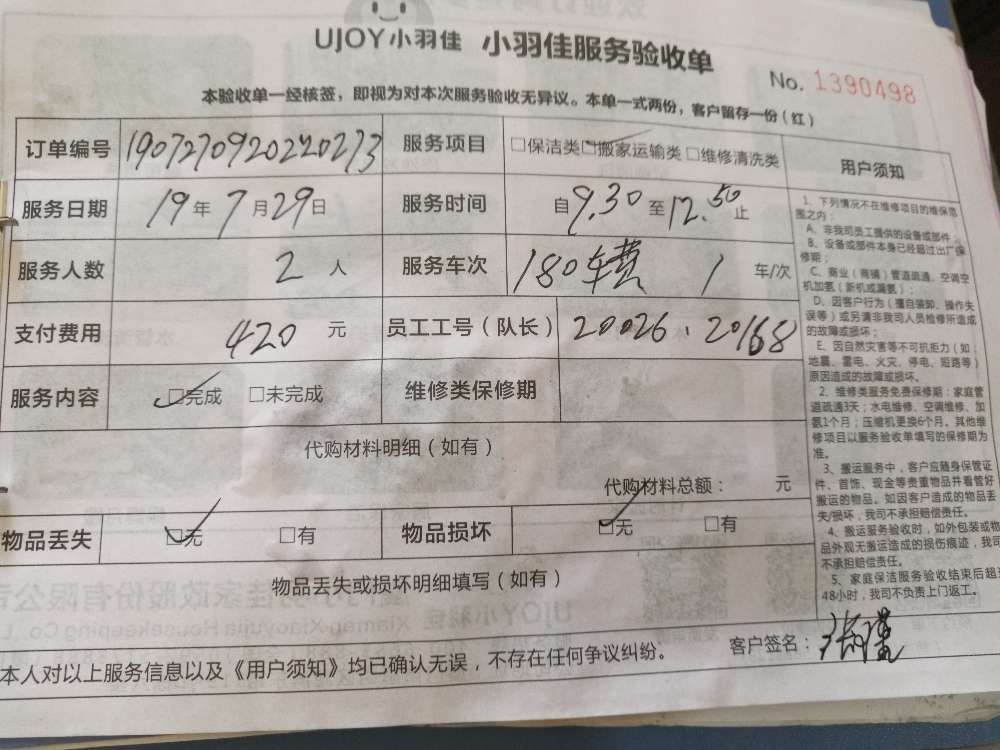 UJOY小羽佳 小羽佳服务验收单
No. 1390498
本验收单一经核签，即视为对本次服务验收无异议。本单一式两份，客户留存一份（红）
订单编号 1907270920220273 服务项目 □保洁类 ☑搬家运输类 □维修清洗类
服务日期 19年7月29日 服务时间 自9.30至12.50止
服务人数 2人 服务车次 180车费 1 车/次
支付费用 420 元 员工工号（队长） 20026.20168
服务内容 ☑完成 □未完成 维修类保修期
代购材料明细（如有）
代购材料总额： 元
物品丢失 ☑无 □有 物品损坏 ☑无 □有
物品丢失或损坏明细填写（如有）
用户须知
1、下列情况不在维修项目的维保范
围之内：
A、非我司员工提供的设备或部件；
B、设备或部件本身已经超过出厂保
修期；
C、商业（商铺）管道疏通、空调空
机加氨（新机或漏氨）；
D、因客户行为（擅自装卸、操作失
误等）或另请非我司人员检修所造成
的故障或损坏；
E、因自然灾害等不可抗拒力（如：
地震、雷电、火灾、停电、短路等）
原因造成的故障或损坏。
2、维修类服务免费保修期：家庭管
道疏通3天；水电维修、空调维修、加
氨1个月；压缩机更换6个月。其他维
修项目以服务验收单填写的保修期为
准。
3、搬运服务中，客户应随身保管证
件、首饰、现金等贵重物品并看管好
搬运的物品。如因客户造成的物品丢
失/损坏，我司不承担赔偿责任。
4、搬运服务验收时，如外包装或物
品外观无搬运造成的损伤痕迹，我司
不承担赔偿责任。
5、家庭保洁服务验收结束后超过
48小时，我司不负责上门返工。
本人对以上服务信息以及《用户须知》均已确认无误，不存在任何争议纠纷。
客户签名：